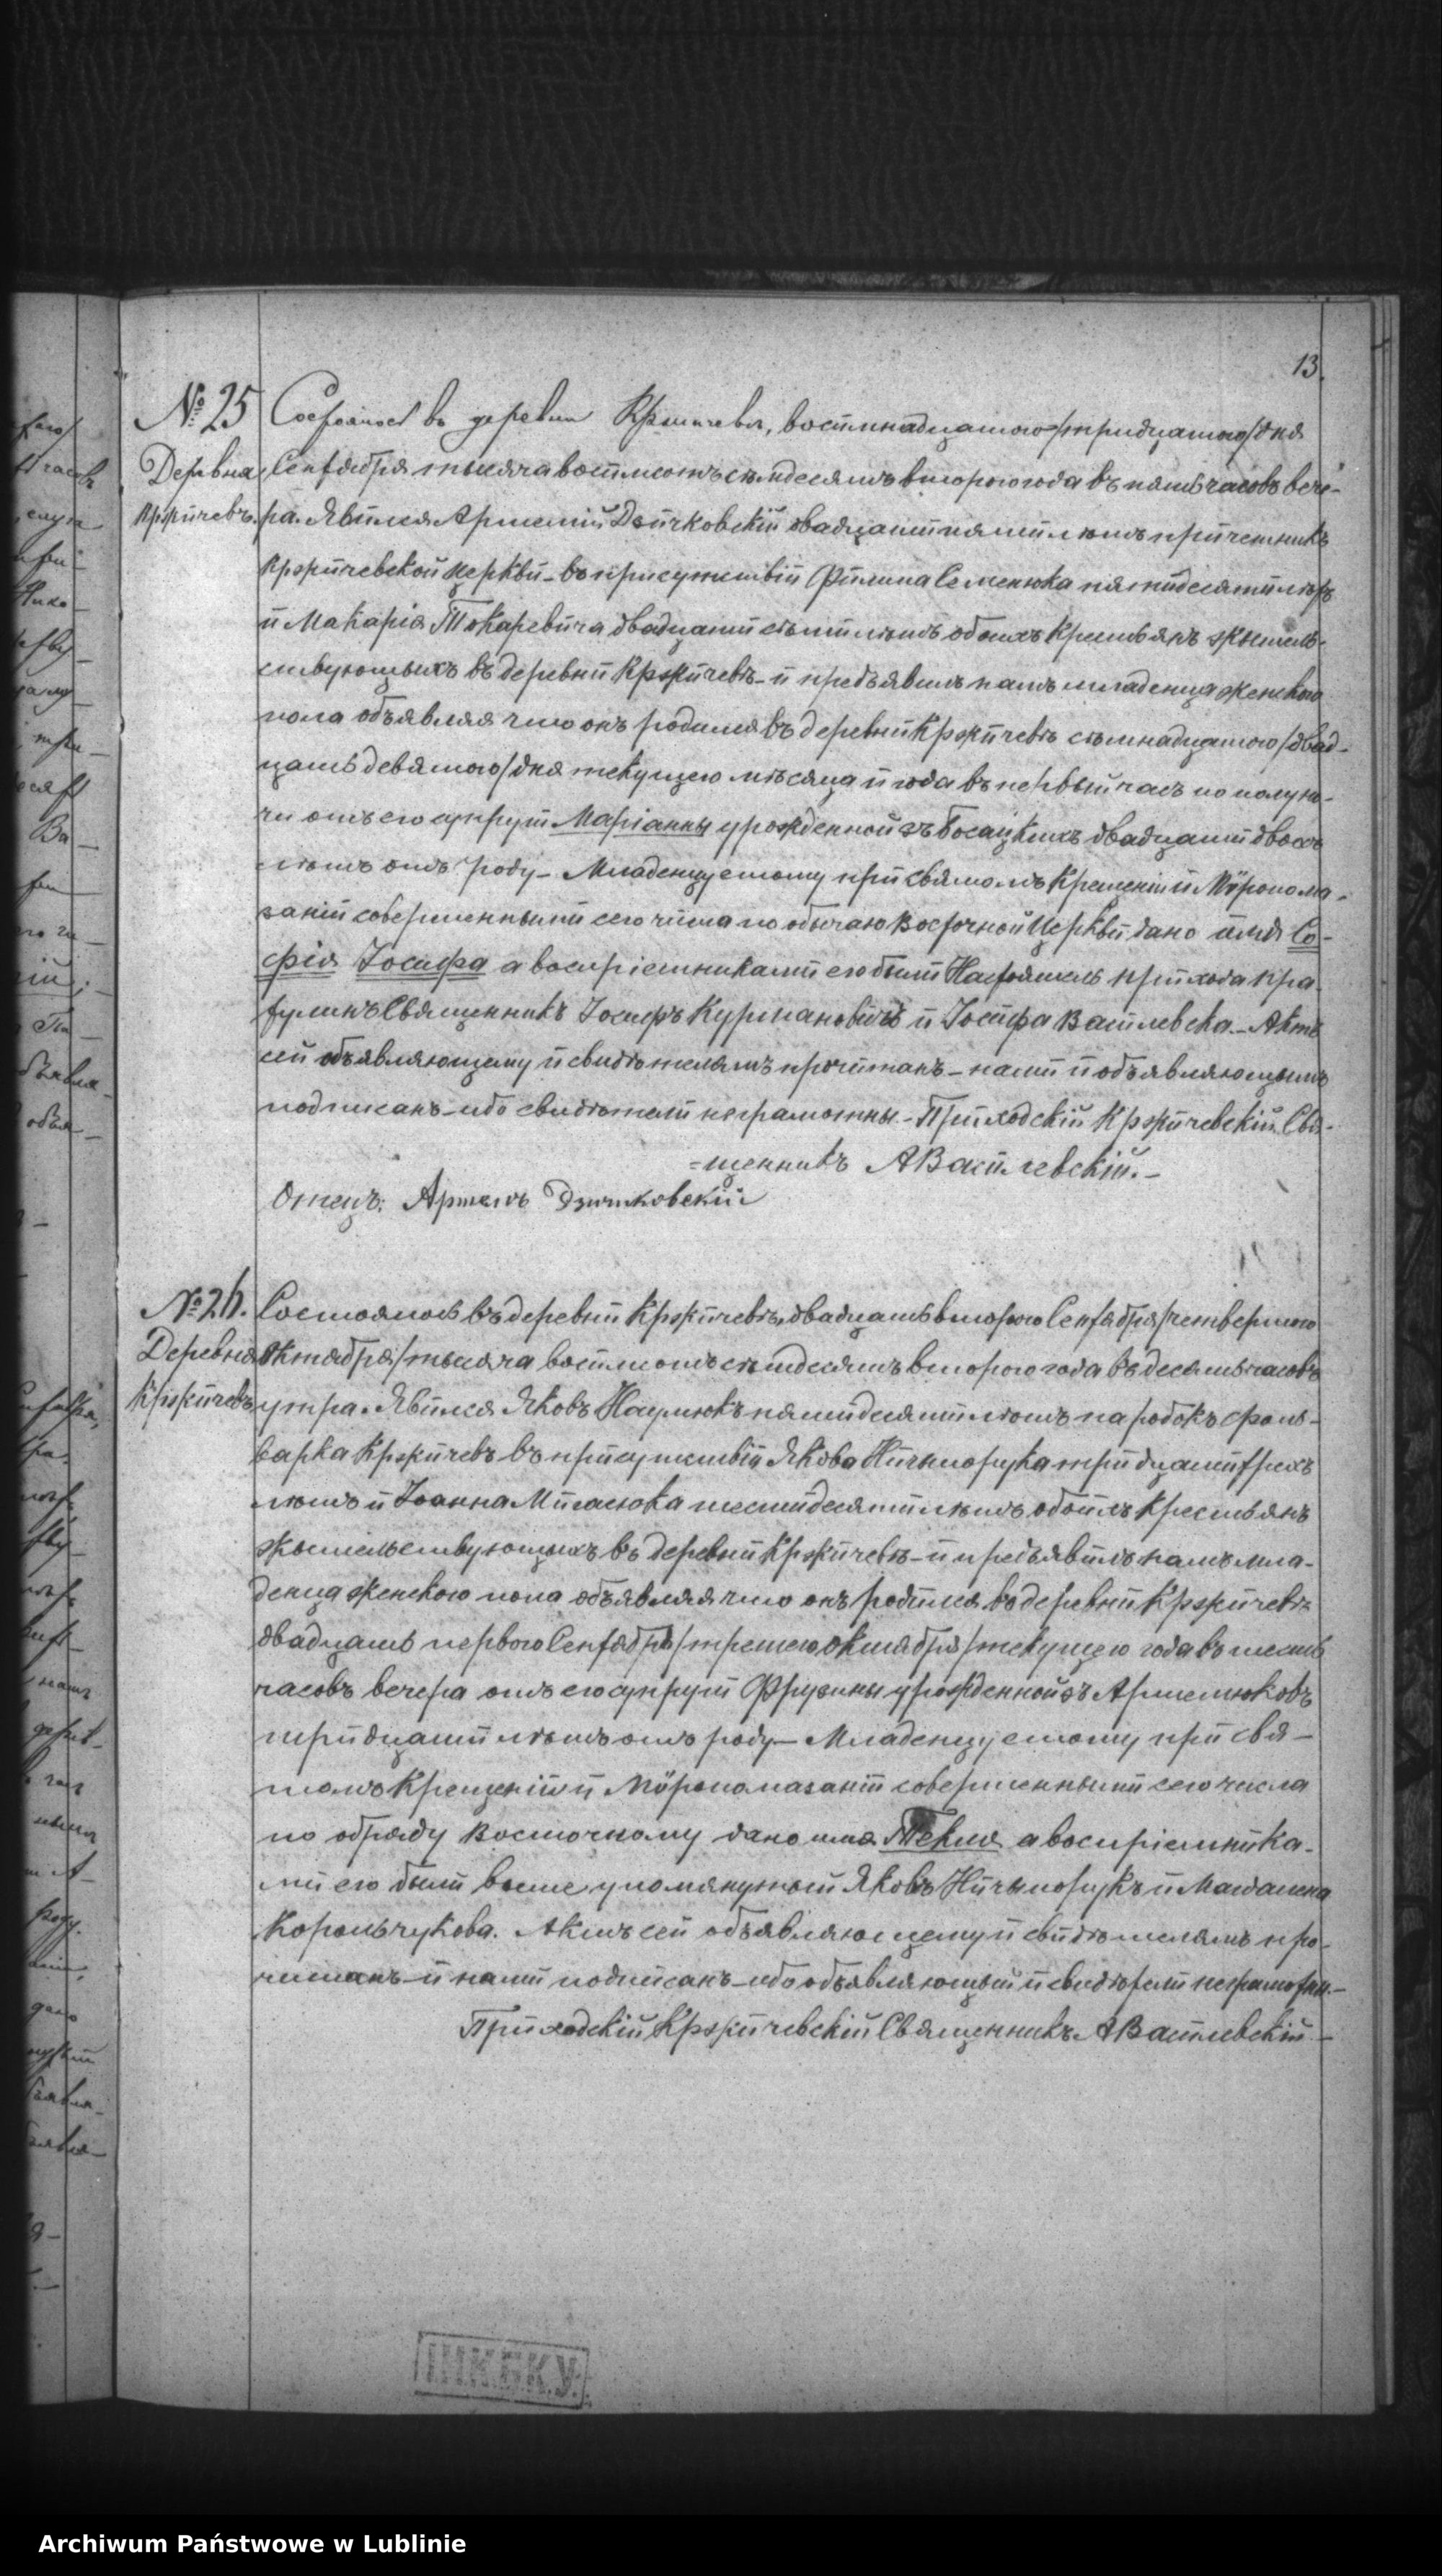 13.
№ 25
Деревня
Кржичевъ.
Состоялось въ деревни Кржичевѣ, восемнадцатого/тридцатого/дня
Сентября тысяча восемсотъ семдесятъ второго года въ пять часовъ вече-
ра. Явился Артемій Дзичковскій двадцати пяти лѣтъ причетникъ
Кржичевской церкви – въ присутствіи Филипа Семенюка пятидесяти лѣтъ
и Макарія Токаревича двадцати семи лѣтъ обоихъ крестьянъ жытель-
ствующыхъ въ деревни Кржичевѣ – и предъявилъ намъ младенца женского
пола объявляя что онъ родился въ деревни Кржичевѣ семнадцатого/двад-
цать девятого/дня текущего мѣсяца и года въ первый часъ по полуно-
чи отъ его супруги Маріанны урожденной зъ Босацкихъ двадцати двохъ
лѣтъ отъ роду – Младенцу етому при святомъ Крещеніи и Мѵропома-
заніи совершенными сего числа по обычаю Восточной Церкви дано имя Со-
фія Іосифа а воспріемниками его были Настоятель прихода Пра-
тулинъ Священникъ Іосифъ Курмановичъ и Іосифа Василевска. – Актъ
сей объявляющему и свидѣтелямъ прочитанъ – нами и объявляющымъ
подписанъ – ибо свидѣтели неграмотны. – Приходскій Кржичевскій Свя-
=щенникъ АВасилевскій. –
Отецъ: Артемъ Дзичковскій
№ 26.
Деревня
Кржичевъ
Состоялось въ деревни Кржичевѣ, двадцать второго Сентября/четвертого
Октября/тысяча восемсотъ семдесятъ второго года въ десять часовъ
утра. Явился Яковъ Наумюкъ пятидесяти лѣтъ паробокъ фоль-
варка Кржичевъ въ присутствіи Якова Ничыпорука тридцати трехъ
лѣтъ и Іоанна Мисаюка шестидесяти лѣтъ обоихъ крестьянъ
жытельствующыхъ въ деревни Кржичевѣ – и предъявилъ намъ мла-
денца женского пола объявляя что онъ родился въ деревни Кржичевѣ
двадцать первого Сентября/третего Октября/текущего года въ шесть
часовъ вечера отъ его супруги Фрузины урожденной зъ Артемюковъ
тридцати лѣтъ отъ роду – Младенцу етому при свя-
томъ Крещеніи и Мѵропомазаніи совершенными сего числа
по обряду Восточному дано имя Текля а воспріемника-
ми его были выше упомянутый Яковъ Ничыпорукъ и Магдалена
Корольчукова. Актъ сей объявляющему и свидѣтелямъ про-
читанъ – и нами подписанъ – ибо объявляющый и свидѣтели неграмотны. –
Приходскій Кржичевскій Священникъ АВасилевскій –
Archiwum Państwowe w Lublinie